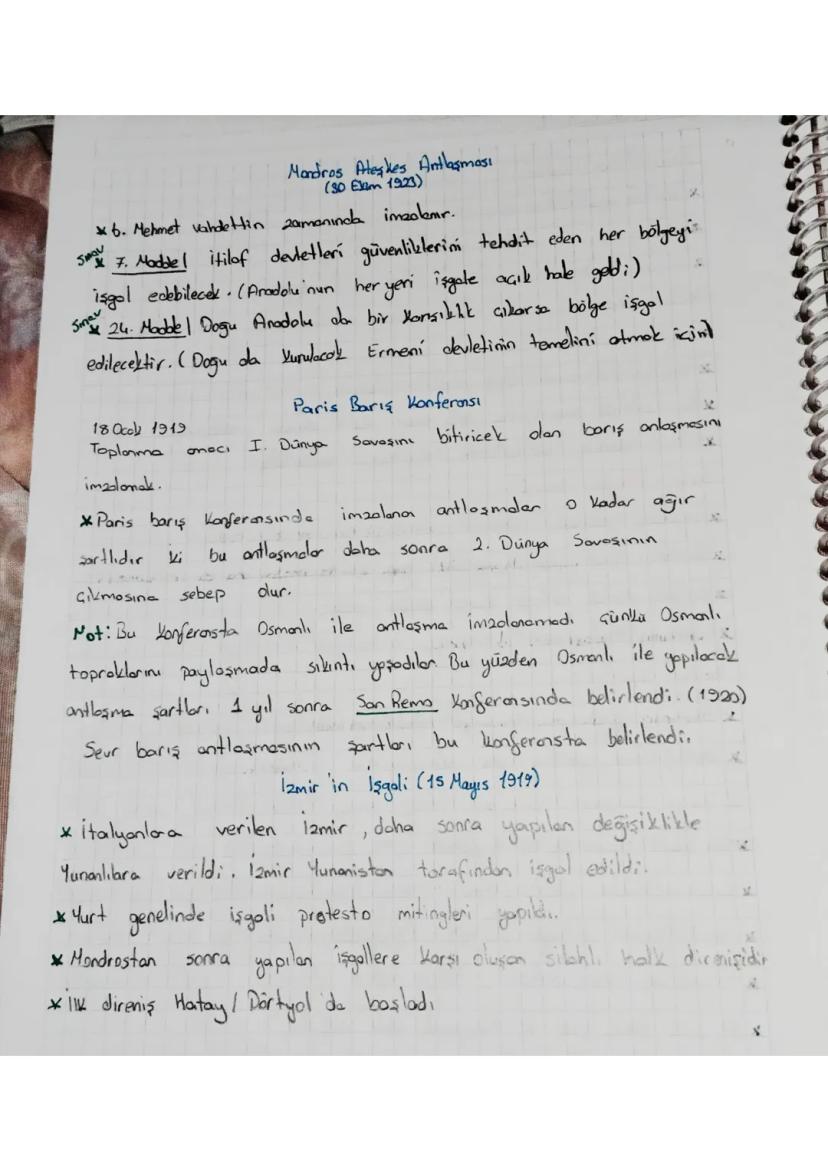 Mondros Ateşkes Antlaşması
(30 Ekim 1923)
* 6. Mehmet Vahdettin zamanında imzalanır.
Sınav * 7. Madde | itilaf devletleri güvenliklerini tehdit eden her bölgeyi
işgal edebilecek. (Anadolu'nun her yeri işgale açık hale geldi;)
Sınav * 24. Madde | Doğu Anadolu da bir karışıklık çıkarsa bölge işgal
edilecektir. (Doğu da kurulacak Ermeni devletinin temelini atmak için)
Paris Barış Konferansı
18 Ocak 1919
Toplanma amacı I. Dünya Savaşını bitiricek olan barış anlaşmasını
imzalamak.
* Paris barış konferansında imzalanan antlaşmalar o kadar ağır
şartlıdır ki bu antlaşmalar daha sonra 2. Dünya Savaşının
çıkmasına sebep olur.
Not: Bu konferansta Osmanlı ile antlaşma imzalanamadı çünkü Osmanlı
topraklarını paylaşmada sıkıntı yaşadılar. Bu yüzden Osmanlı ile yapılacak
antlaşma şartları 1 yıl sonra San Remo Konferansında belirlendi. (1920)
Sevr barış antlaşmasının şartları bu konferansta belirlendi.
İzmir'in İşgali (15 Mayıs 1919)
* İtalyanlara verilen İzmir, daha sonra yapılan değişiklikle
Yunanlılara verildi. İzmir Yunanistan tarafından işgal edildi.
* Yurt genelinde işgali protesto mitingleri yapıldı.
* Mondrostan sonra yapılan işgallere karşı oluşan silahlı halk direnişidir
* İlk direniş Hatay / Dörtyol'da başladı